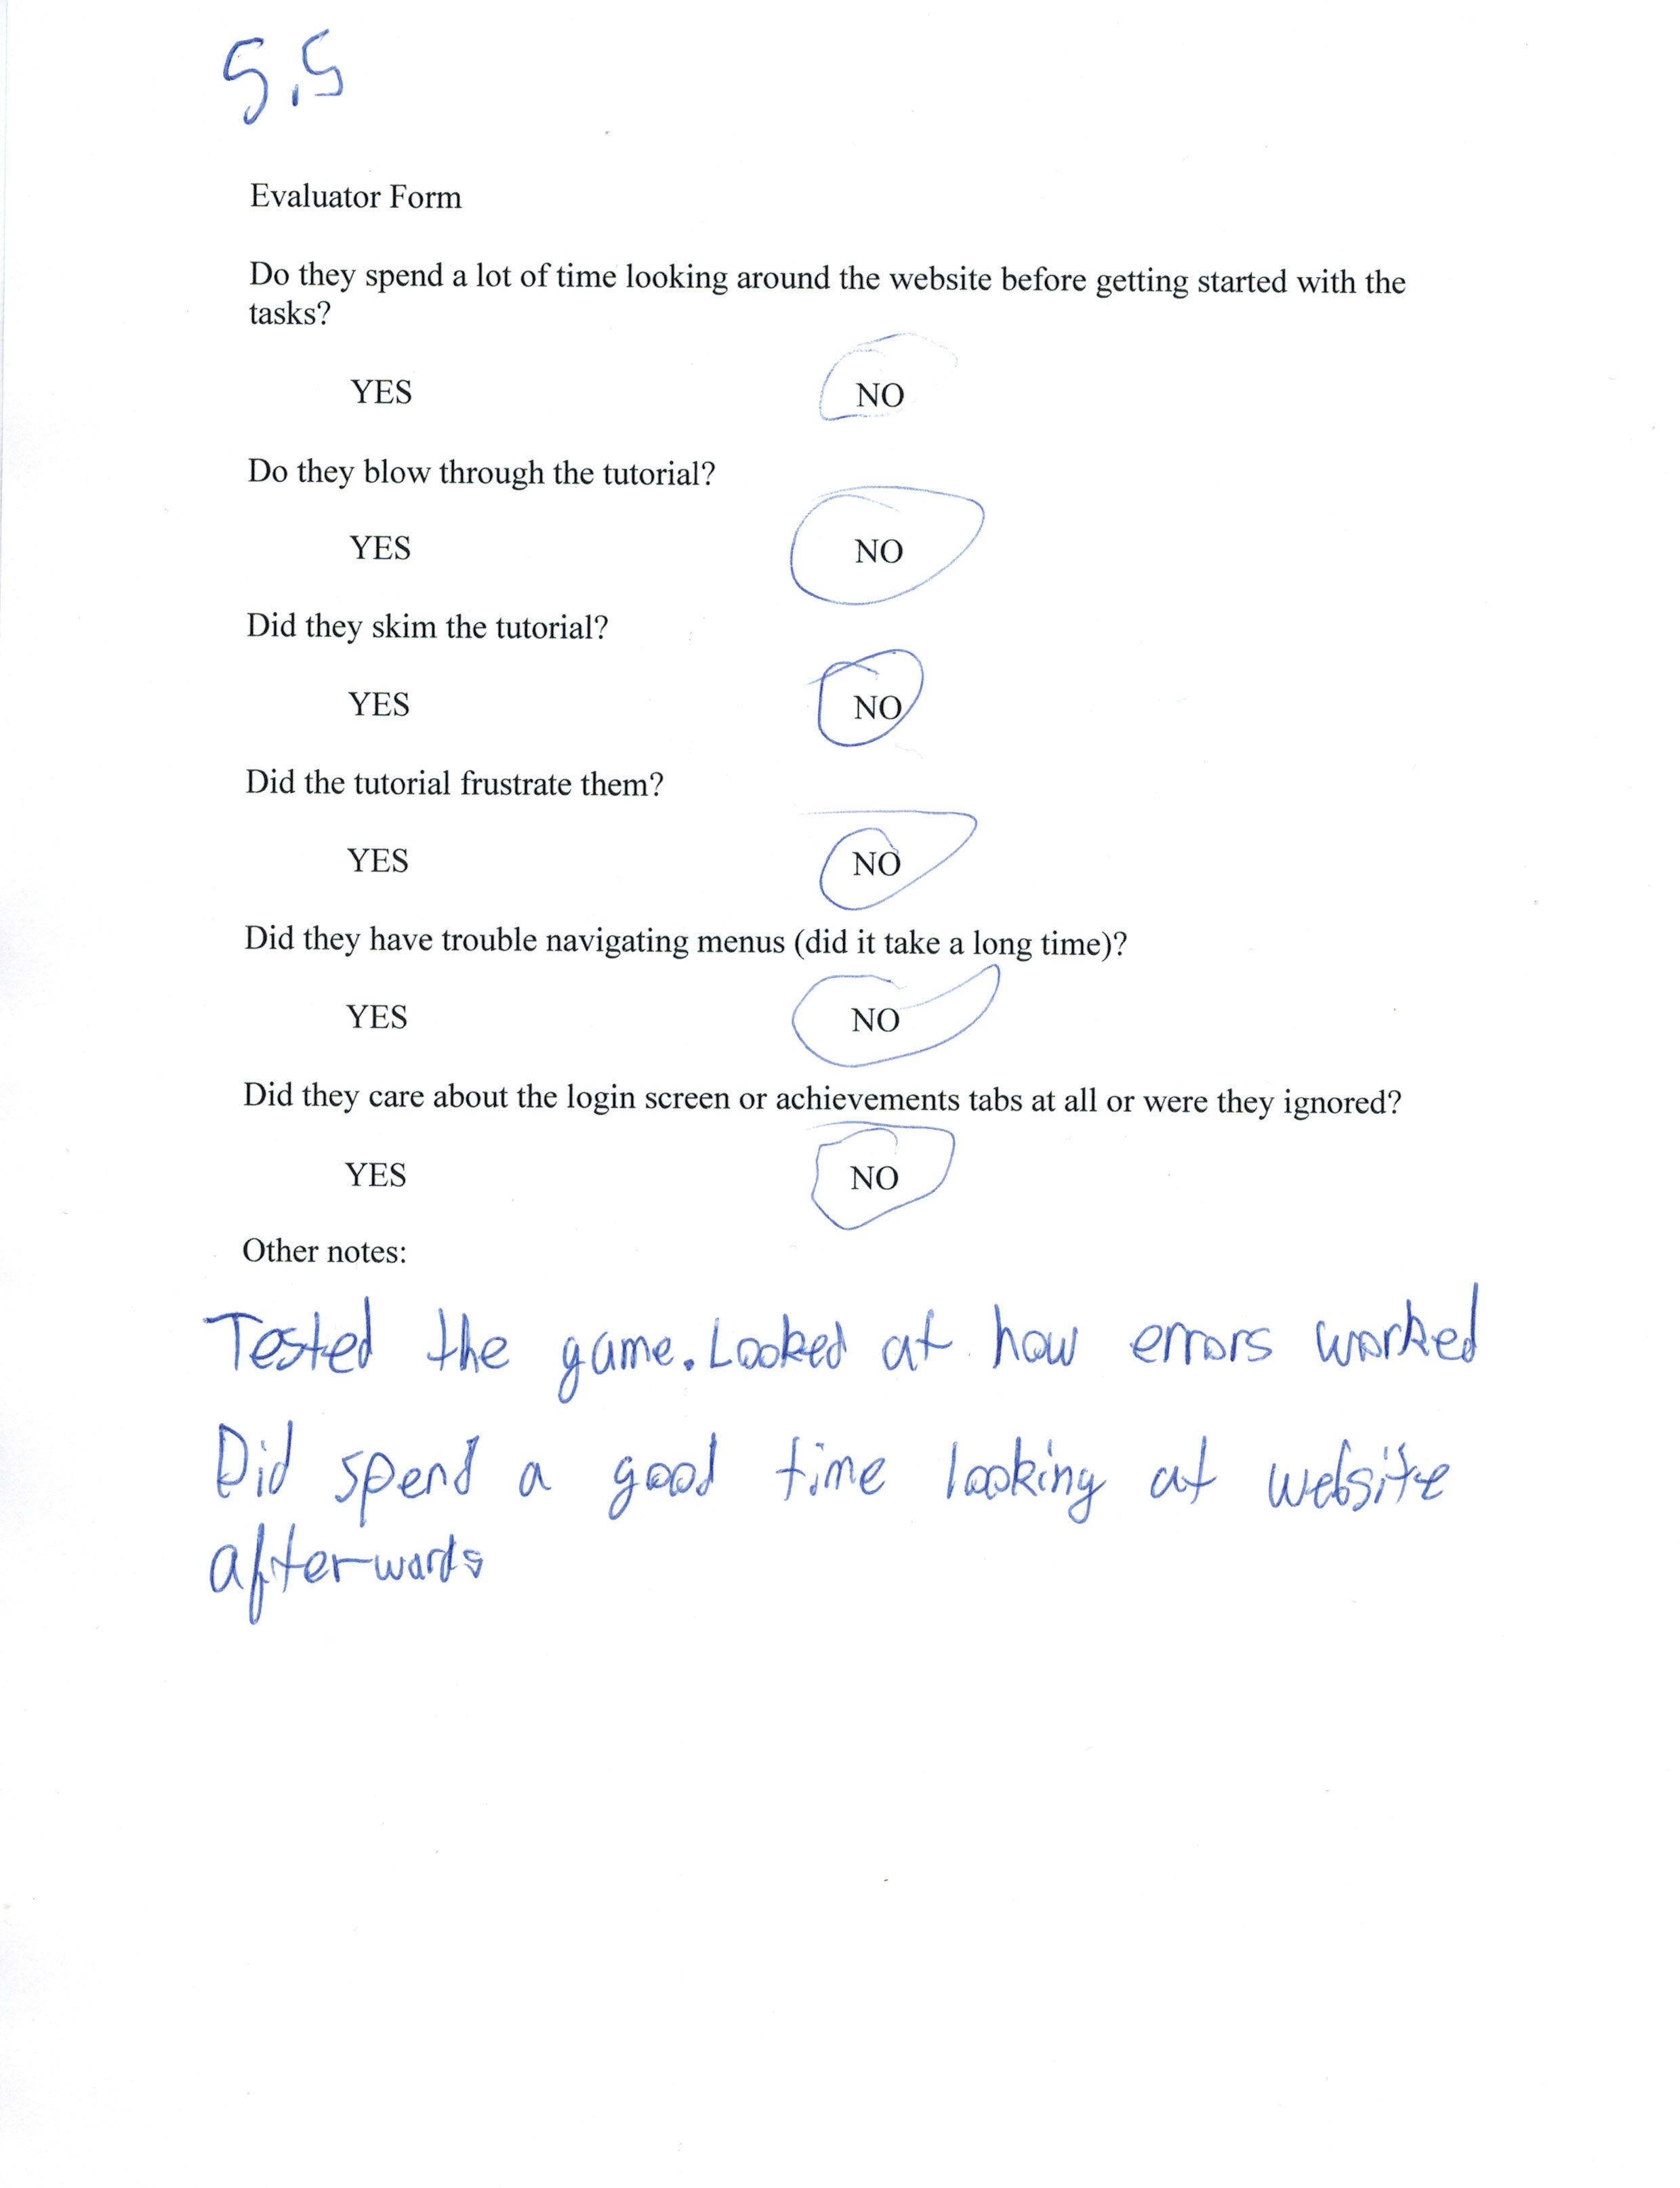 5.5
Evaluator Form
Do they spend a lot of time looking around the website before getting started with the
tasks?
YES NO
Do they blow through the tutorial?
YES NO
Did they skim the tutorial?
YES NO
Did the tutorial frustrate them?
YES NO
Did they have trouble navigating menus (did it take a long time)?
YES NO
Did they care about the login screen or achievements tabs at all or were they ignored?
YES NO
Other notes:
Tested the game. Looked at how errors worked
Did spend a good time looking at website
afterwards